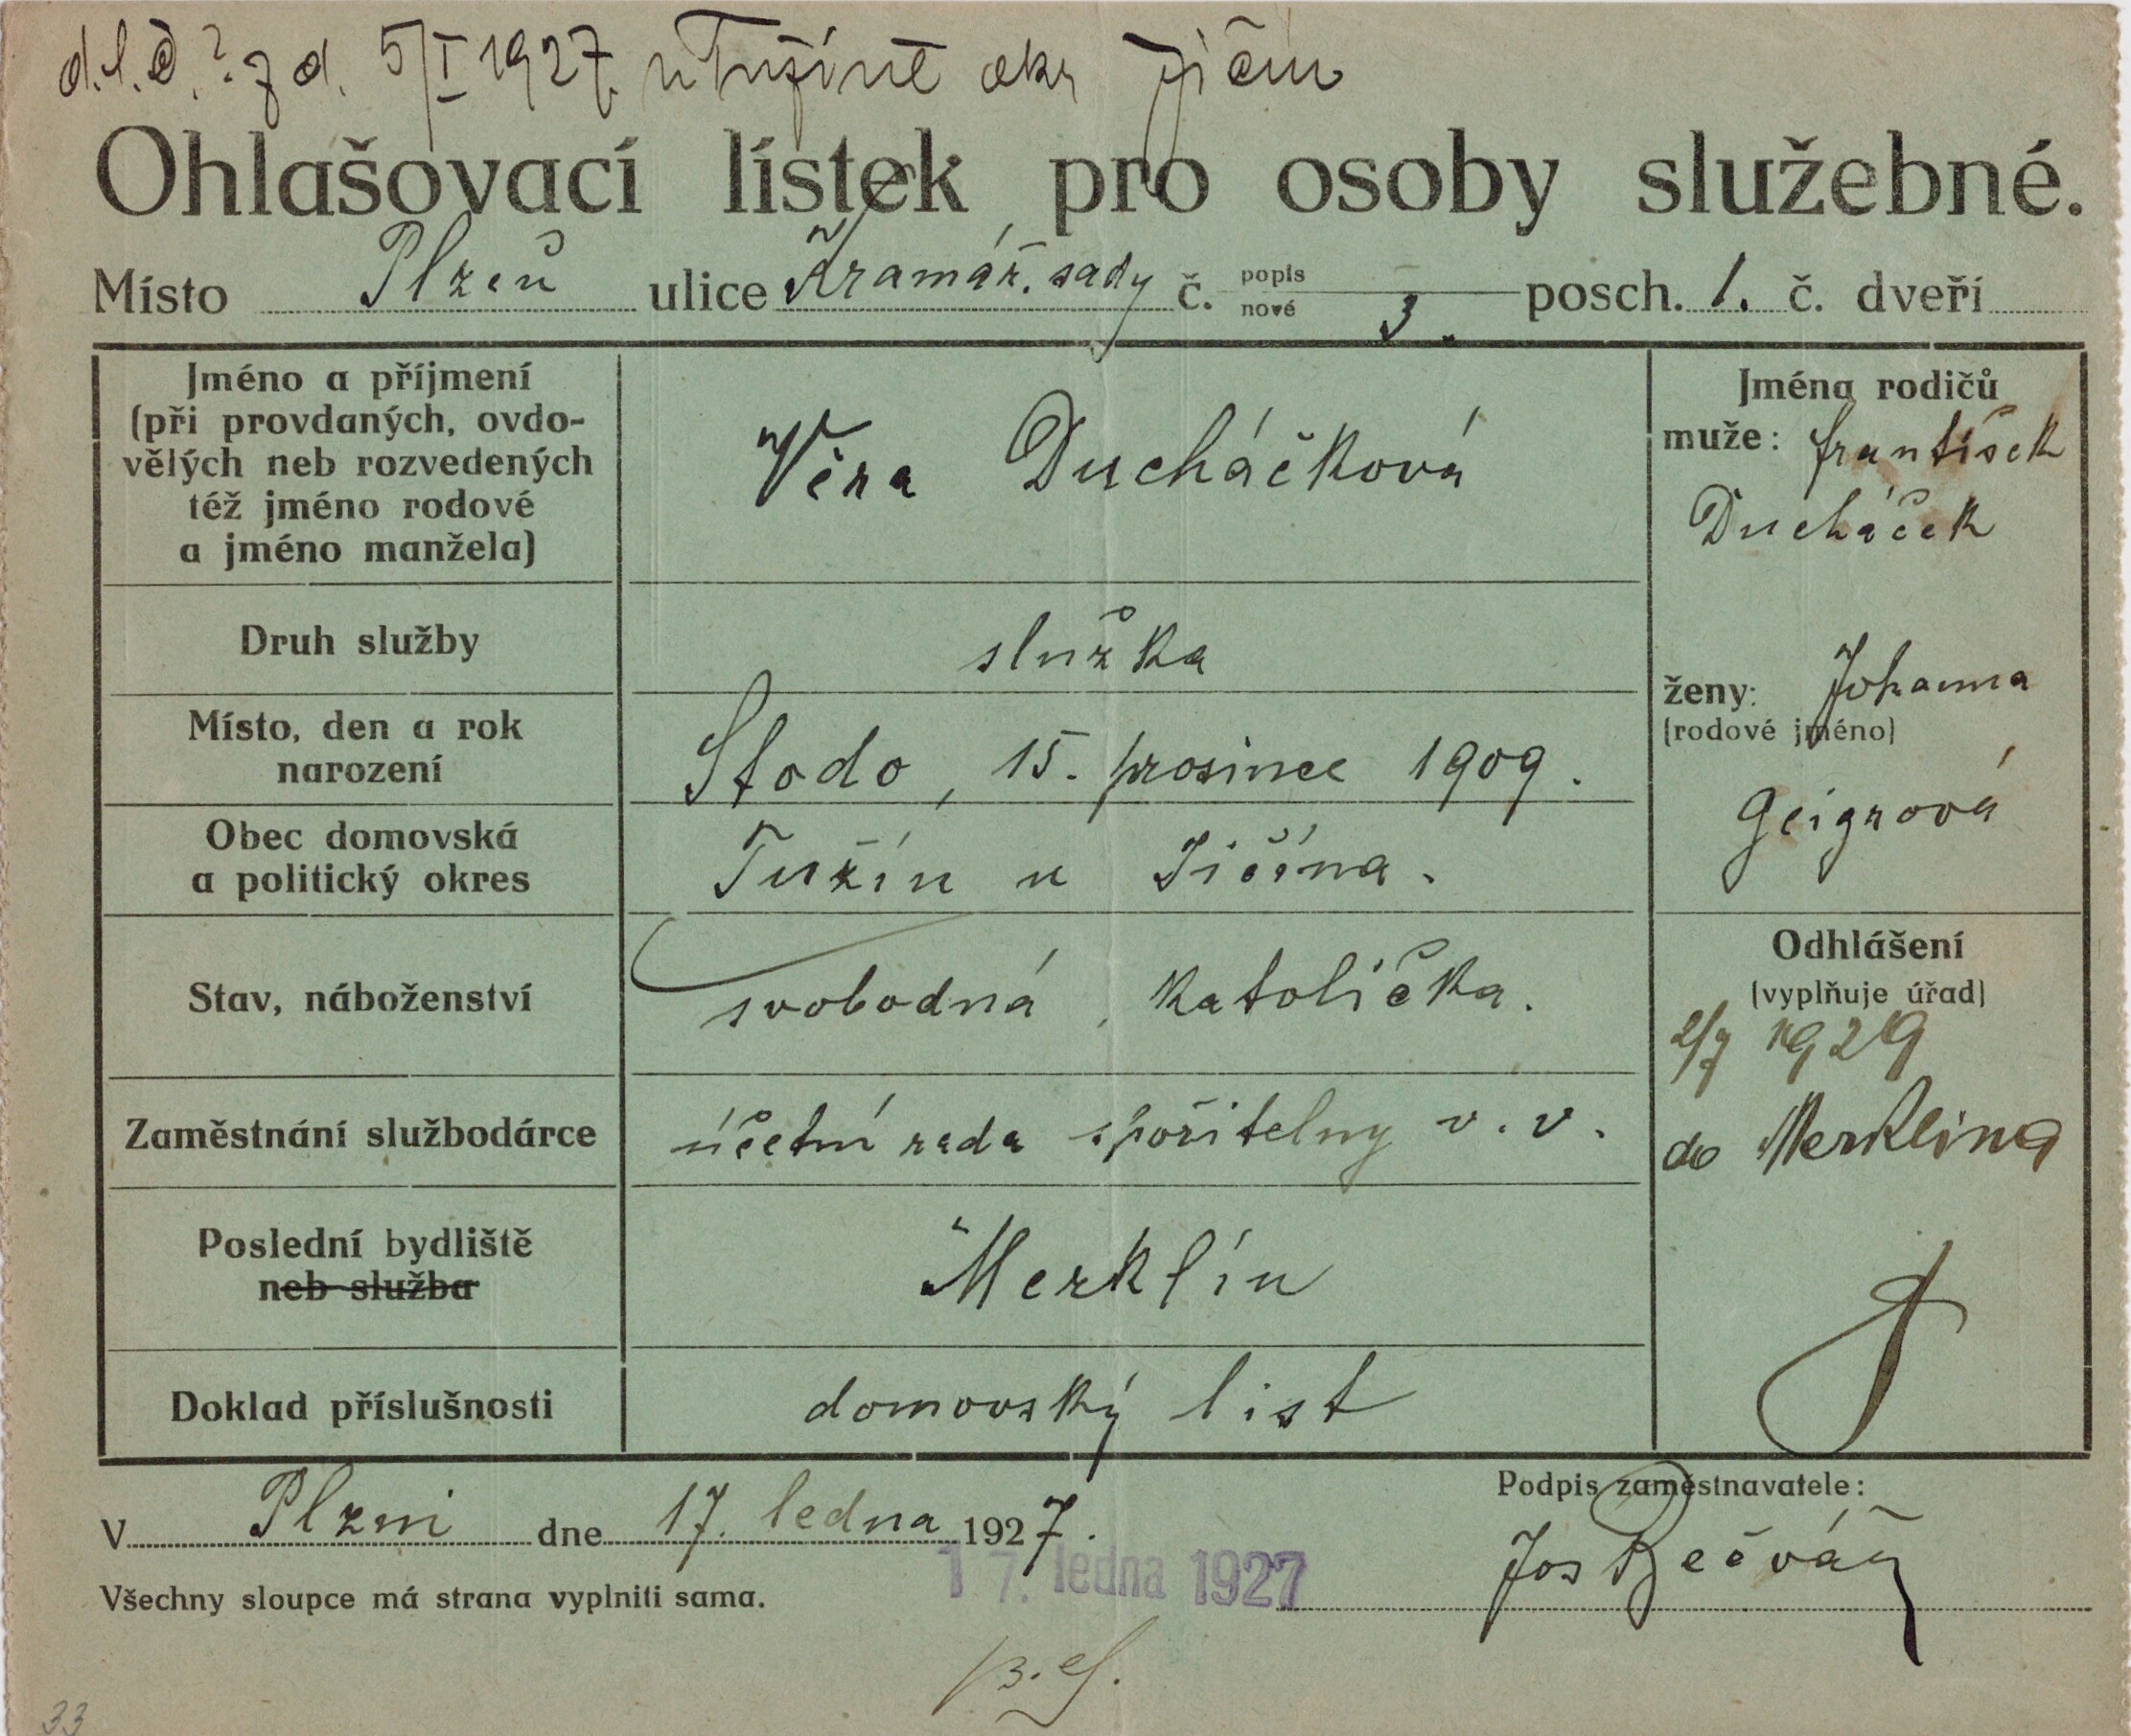 d. l. č. ? z d. 5/I 1927. v Tužíně okr Jičín
Ohlašovací lístek pro osoby služebné.
Místo Plzeň ulice Kramář. sady č. popis nové 3. posch. 1. č. dveří
Jméno a příjmení
(při provdaných, ovdo-
vělých neb rozvedených
též jméno rodové
a jméno manžela)
Věra Ducháčková
Jména rodičů
muže: František
Ducháček
ženy: Johanna
(rodové jméno)
Geigrová
Druh služby
služka
Místo, den a rok
narození
Stodo, 15. prosince 1909.
Obec domovská
a politický okres
Tužín u Jičína.
Stav, náboženství
svobodná, katolička.
Odhlášení
(vyplňuje úřad)
2/7 1929
do Merklína
Zaměstnání službodárce
účetní rada spořitelny v. v.
Poslední bydliště
neb služba
Merklín
Doklad příslušnosti
domovský list
V Plzni dne 17. ledna 1927.
17. ledna 1927
Podpis zaměstnavatele:
Jos Bečvář
Všechny sloupce má strana vyplniti sama.
33